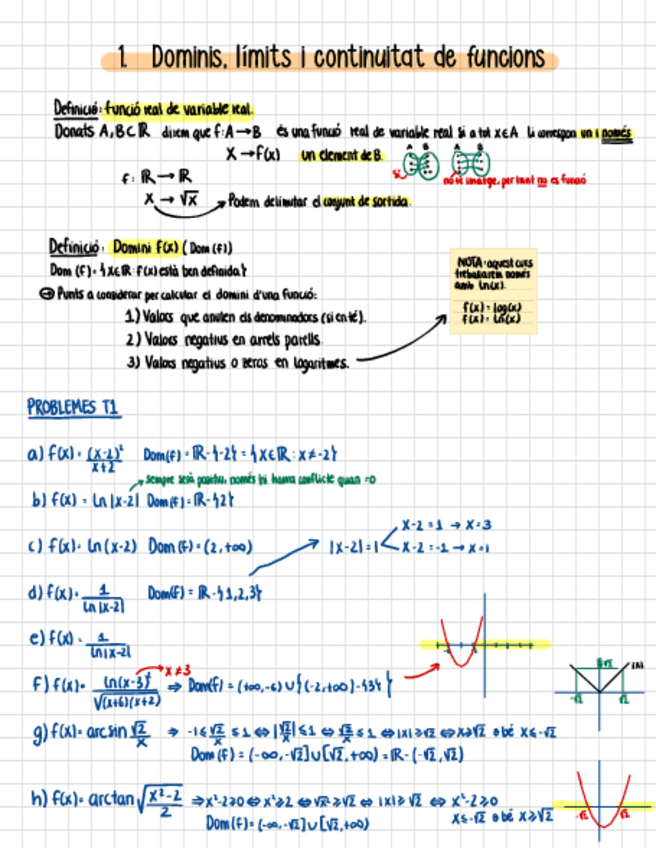 1. Dominis, límits i continuitat de funcions
Definició: funció real de variable real.
Donats A,B⊂ℝ diem que f:A→B és una funció real de variable real si a tot x∈A li correspon un i només
X→f(x) un element de B.
A B A B
sí
no té imatge, per tant no es funció
f: ℝ→ℝ
X → √x → Podem delimitar el conjunt de sortida.
Definició: Domini f(x) (Dom(f))
Dom (f)={x∈ℝ: f(x) està ben definida}
→ Punts a considerar per calcular el domini d'una funció:
1) Valors que anulen els denominadors (si en té).
2) Valors negatius en arrels parells.
3) Valors negatius o zeros en logaritmes.
NOTA: aquest curs
treballarem només
amb ln(x).
f(x)=log(x)
f(x)=ln(x)
PROBLEMES T1
a) f(x)=(x-2)²/x+2 Dom(f)=ℝ-{-2}={x∈ℝ: x≠-2}
→ sempre serà positiu, només hi haurà conflicte quan =0
b) f(x)=ln|x-2| Dom(f)=ℝ-{2}
c) f(x)=ln(x-2) Dom(f)=(2,+∞)
|x-2|=1
x-2=1 → x=3
x-2=-1 → x=1
d) f(x)=1/ln|x-2| Dom(f)=ℝ-{1,2,3}
e) f(x)=1/ln|x-2|
f) f(x)=ln(x-3)²/√(x+6)(x+2) → x≠3 ⇒ Dom(f)=(+∞,-6)∪{(-2,+∞)-{3}}
√2 |x|
-√2 √2
g) f(x)=arcsin √2/x ⇒ -1≤√2/x≤1 ⇔ |√2/x|≤1 ⇔ √2/x≤1 ⇔ |x|≥√2 ⇔ x≥√2 o bé x≤-√2
Dom(f)=(-∞,-√2]∪[√2,+∞)=ℝ-(-√2,√2)
h) f(x)=arctan √x²-2/2 ⇒ x²-2≥0 ⇔ x²≥2 ⇔ √x²≥√2 ⇔ |x|≥√2 ⇔ x²-2≥0
x≤-√2 o bé x≥√2
Dom(f)=(-∞,-√2]∪[√2,+∞)
-√2 √2